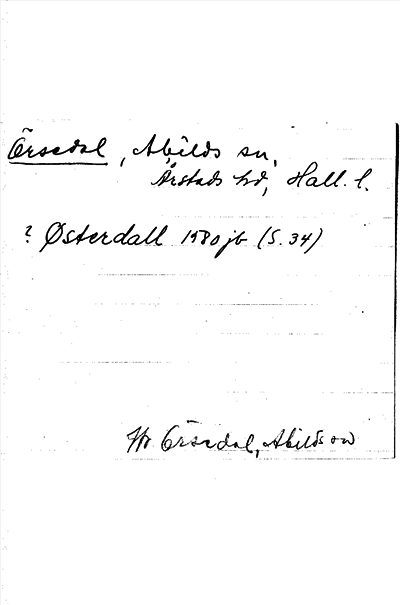 Örsedal, Abilds sn,
Årstads hd, Hall. l.
? Østerdall 1580 jb (S. 34)
Örsedal, Abilds sn